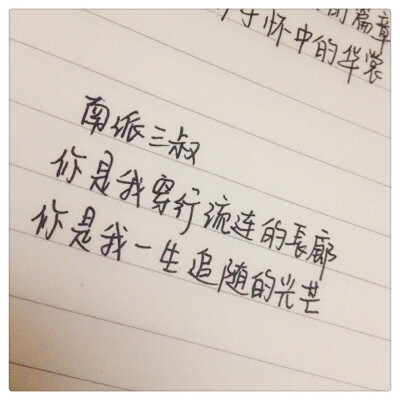 的篇章
怀中的华裳
南派三叔
你是我穿行流连的長廊
你是我一生追随的光芒